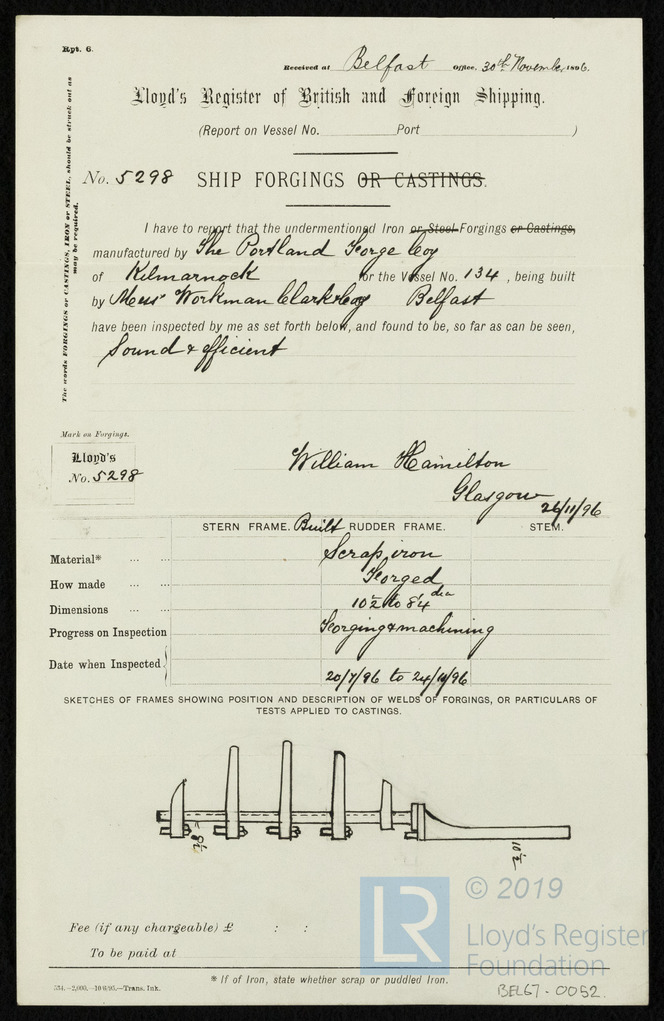 Rpt. 6.
Received at Belfast Office, 30th November 1896.
Lloyd's Register of British and Foreign Shipping.
(Report on Vessel No. Port )
No. 5298 SHIP FORGINGS OR CASTINGS.
The words FORGINGS or CASTINGS, IRON or STEEL, should be struck out as
may be required.
I have to report that the undermentioned Iron or Steel Forgings or Castings,
manufactured by The Portland Forge Coy
of Kilmarnock for the Vessel No. 134, being built
by Messrs Workman Clark & Coy Belfast
have been inspected by me as set forth below, and found to be, so far as can be seen,
Sound & efficient
Mark on Forgings.
Lloyd's
No. 5298
William Hamilton
Glasgow
26/11/96
STERN FRAME. Built RUDDER FRAME. STEM.
Material* ... ... Scrap iron
How made ... ... Forged
Dimensions ... ... 10½ to 8¼ dia
Progress on Inspection Forging & machining
Date when Inspected 20/7/96 to 24/11/96
SKETCHES OF FRAMES SHOWING POSITION AND DESCRIPTION OF WELDS OF FORGINGS, OR PARTICULARS OF
TESTS APPLIED TO CASTINGS.
Fee (if any chargeable) £ : :
To be paid at
* If of Iron, state whether scrap or puddled Iron.
534.—2,000.—10/6/95.—Trans. Ink.
LR
© 2019
Lloyd's Register
Foundation
BEL67-0052